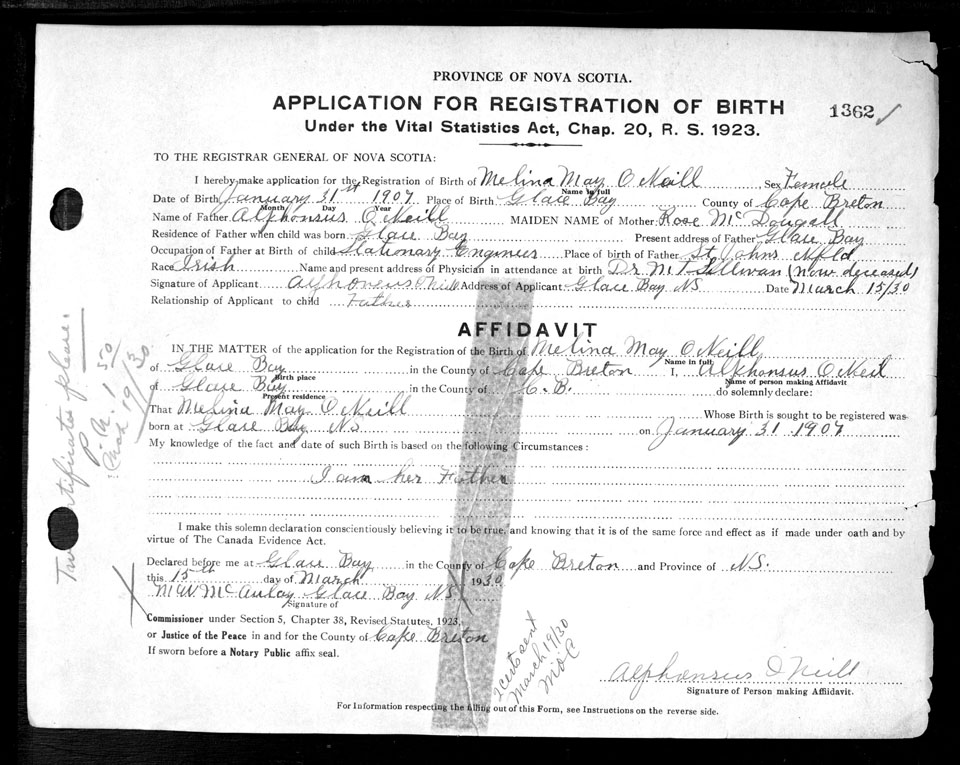 PROVINCE OF NOVA SCOTIA.
APPLICATION FOR REGISTRATION OF BIRTH
1362 ✓
Under the Vital Statistics Act, Chap. 20, R. S. 1923.
TO THE REGISTRAR GENERAL OF NOVA SCOTIA:
I hereby make application for the Registration of Birth of Melina May O'Neill Sex Female
Name in full
Date of Birth January 31st 1907 Place of Birth Glace Bay County of Cape Breton
Month Day Year
Name of Father Alphonsus O'Neill MAIDEN NAME of Mother Rose McDougall
Residence of Father when child was born Glace Bay Present address of Father Glace Bay
Occupation of Father at Birth of child Stationary Engineer Place of birth of Father St. Johns Nfld
Race Irish Name and present address of Physician in attendance at birth Dr. M. T. Sullivan (now deceased)
Signature of Applicant Alphonsus O'Neill Address of Applicant Glace Bay NS Date March 15/30
Relationship of Applicant to child Father
AFFIDAVIT
IN THE MATTER of the application for the Registration of the Birth of Melina May O'Neill
Name in full
of Glace Bay in the County of Cape Breton I, Alphonsus O'Neil
Birth place Name of person making Affidavit
of Glace Bay in the County of C. B. do solemnly declare:
Present residence
That Melina May O'Neill Whose Birth is sought to be registered was
born at Glace Bay NS on January 31 1907
My knowledge of the fact and date of such Birth is based on the following Circumstances:
I am her Father
I make this solemn declaration conscientiously believing it to be true, and knowing that it is of the same force and effect as if made under oath and by
virtue of The Canada Evidence Act.
Declared before me at Glace Bay in the County of Cape Breton and Province of NS.
this 15th day of March 1930
M W McAulay Glace Bay NS
Signature of
Commissioner under Section 5, Chapter 38, Revised Statutes, 1923,
or Justice of the Peace in and for the County of Cape Breton
If sworn before a Notary Public affix seal.
Alphonsus O'Neill
Signature of Person making Affidavit.
For Information respecting the filling out of this Form, see Instructions on the reverse side.
2 certs sent
March 19/30
Two certificates please.
1 50
Cash 19/3/30